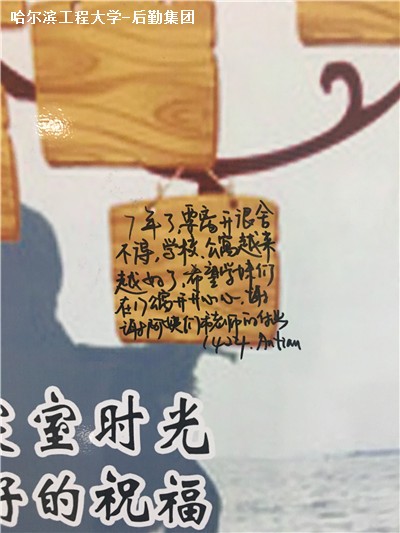 哈尔滨工程大学-后勤集团
7年了,要离开很舍
不得,学校、公寓越来
越好了,希望学妹们
在17公寓开开心心。谢
谢阿姨们和老师的付出
1404. Antian
室时光
好的祝福